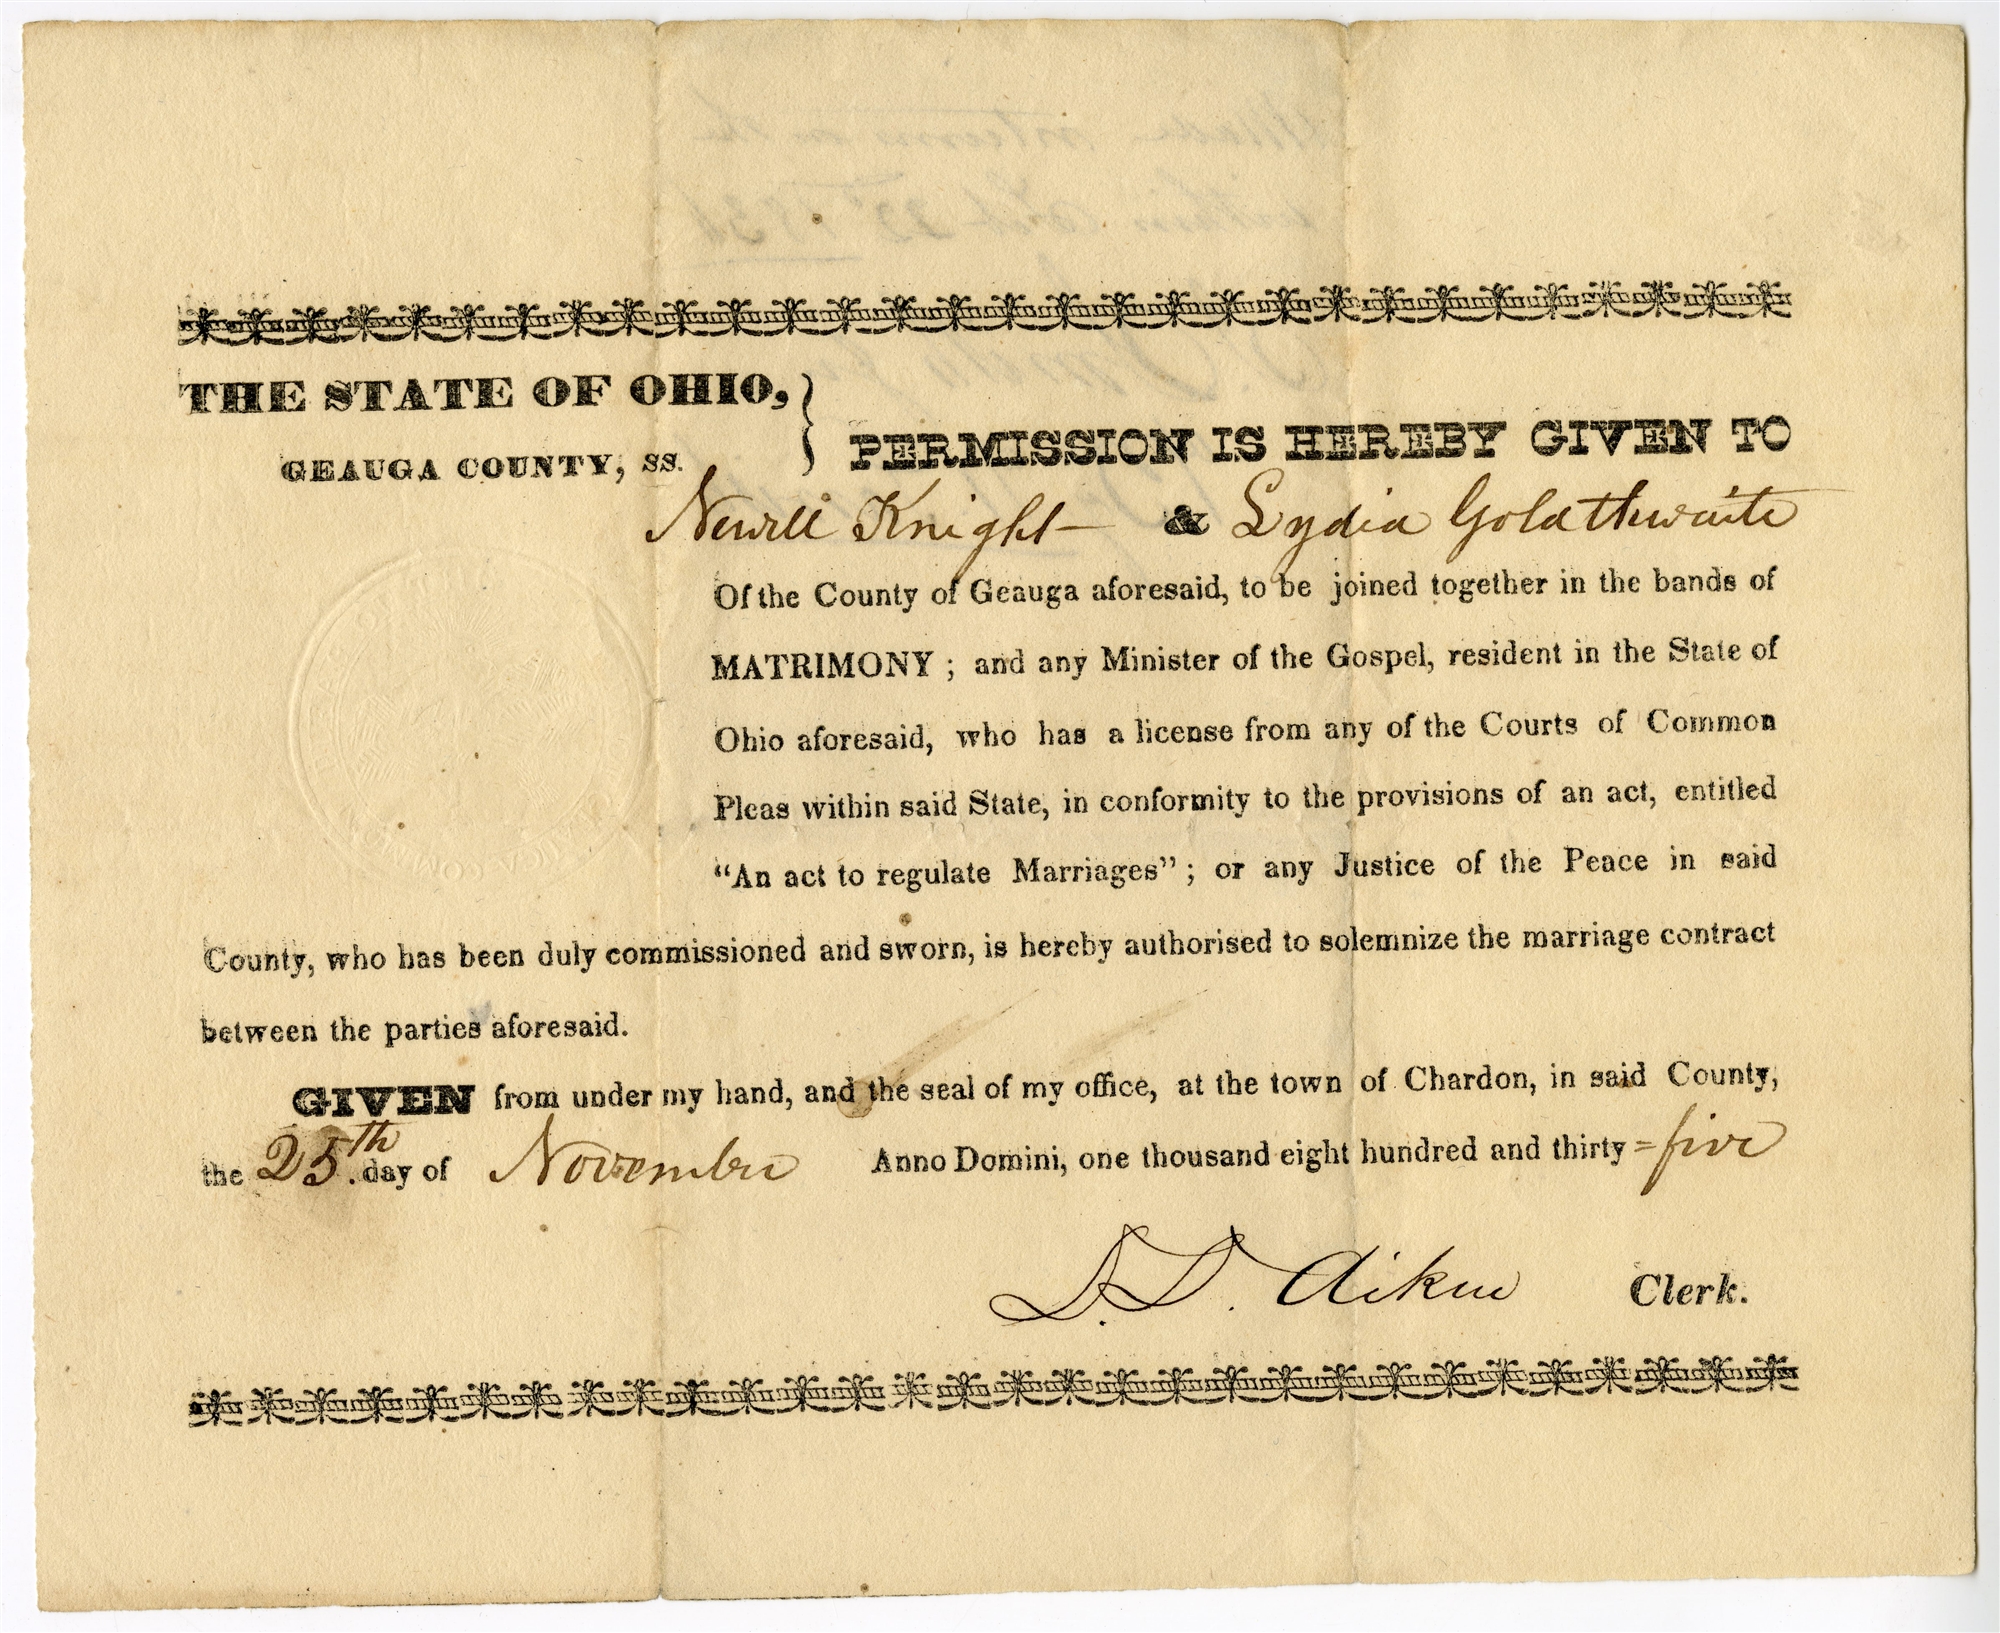 THE STATE OF OHIO,
GEAUGA COUNTY, SS.
PERMISSION IS HEREBY GIVEN TO
Newill Knight & Lydia Goldthwaite
Of the County of Geauga aforesaid, to be joined together in the bands of
MATRIMONY ; and any Minister of the Gospel, resident in the State of
Ohio aforesaid, who has a license from any of the Courts of Common
Pleas within said State, in conformity to the provisions of an act, entitled
"An act to regulate Marriages" ; or any Justice of the Peace in said
County, who has been duly commissioned and sworn, is hereby authorised to solemnize the marriage contract
between the parties aforesaid.
GIVEN from under my hand, and the seal of my office, at the town of Chardon, in said County,
the 25.th day of November Anno Domini, one thousand eight hundred and thirty=five
D. D. Aiken Clerk.